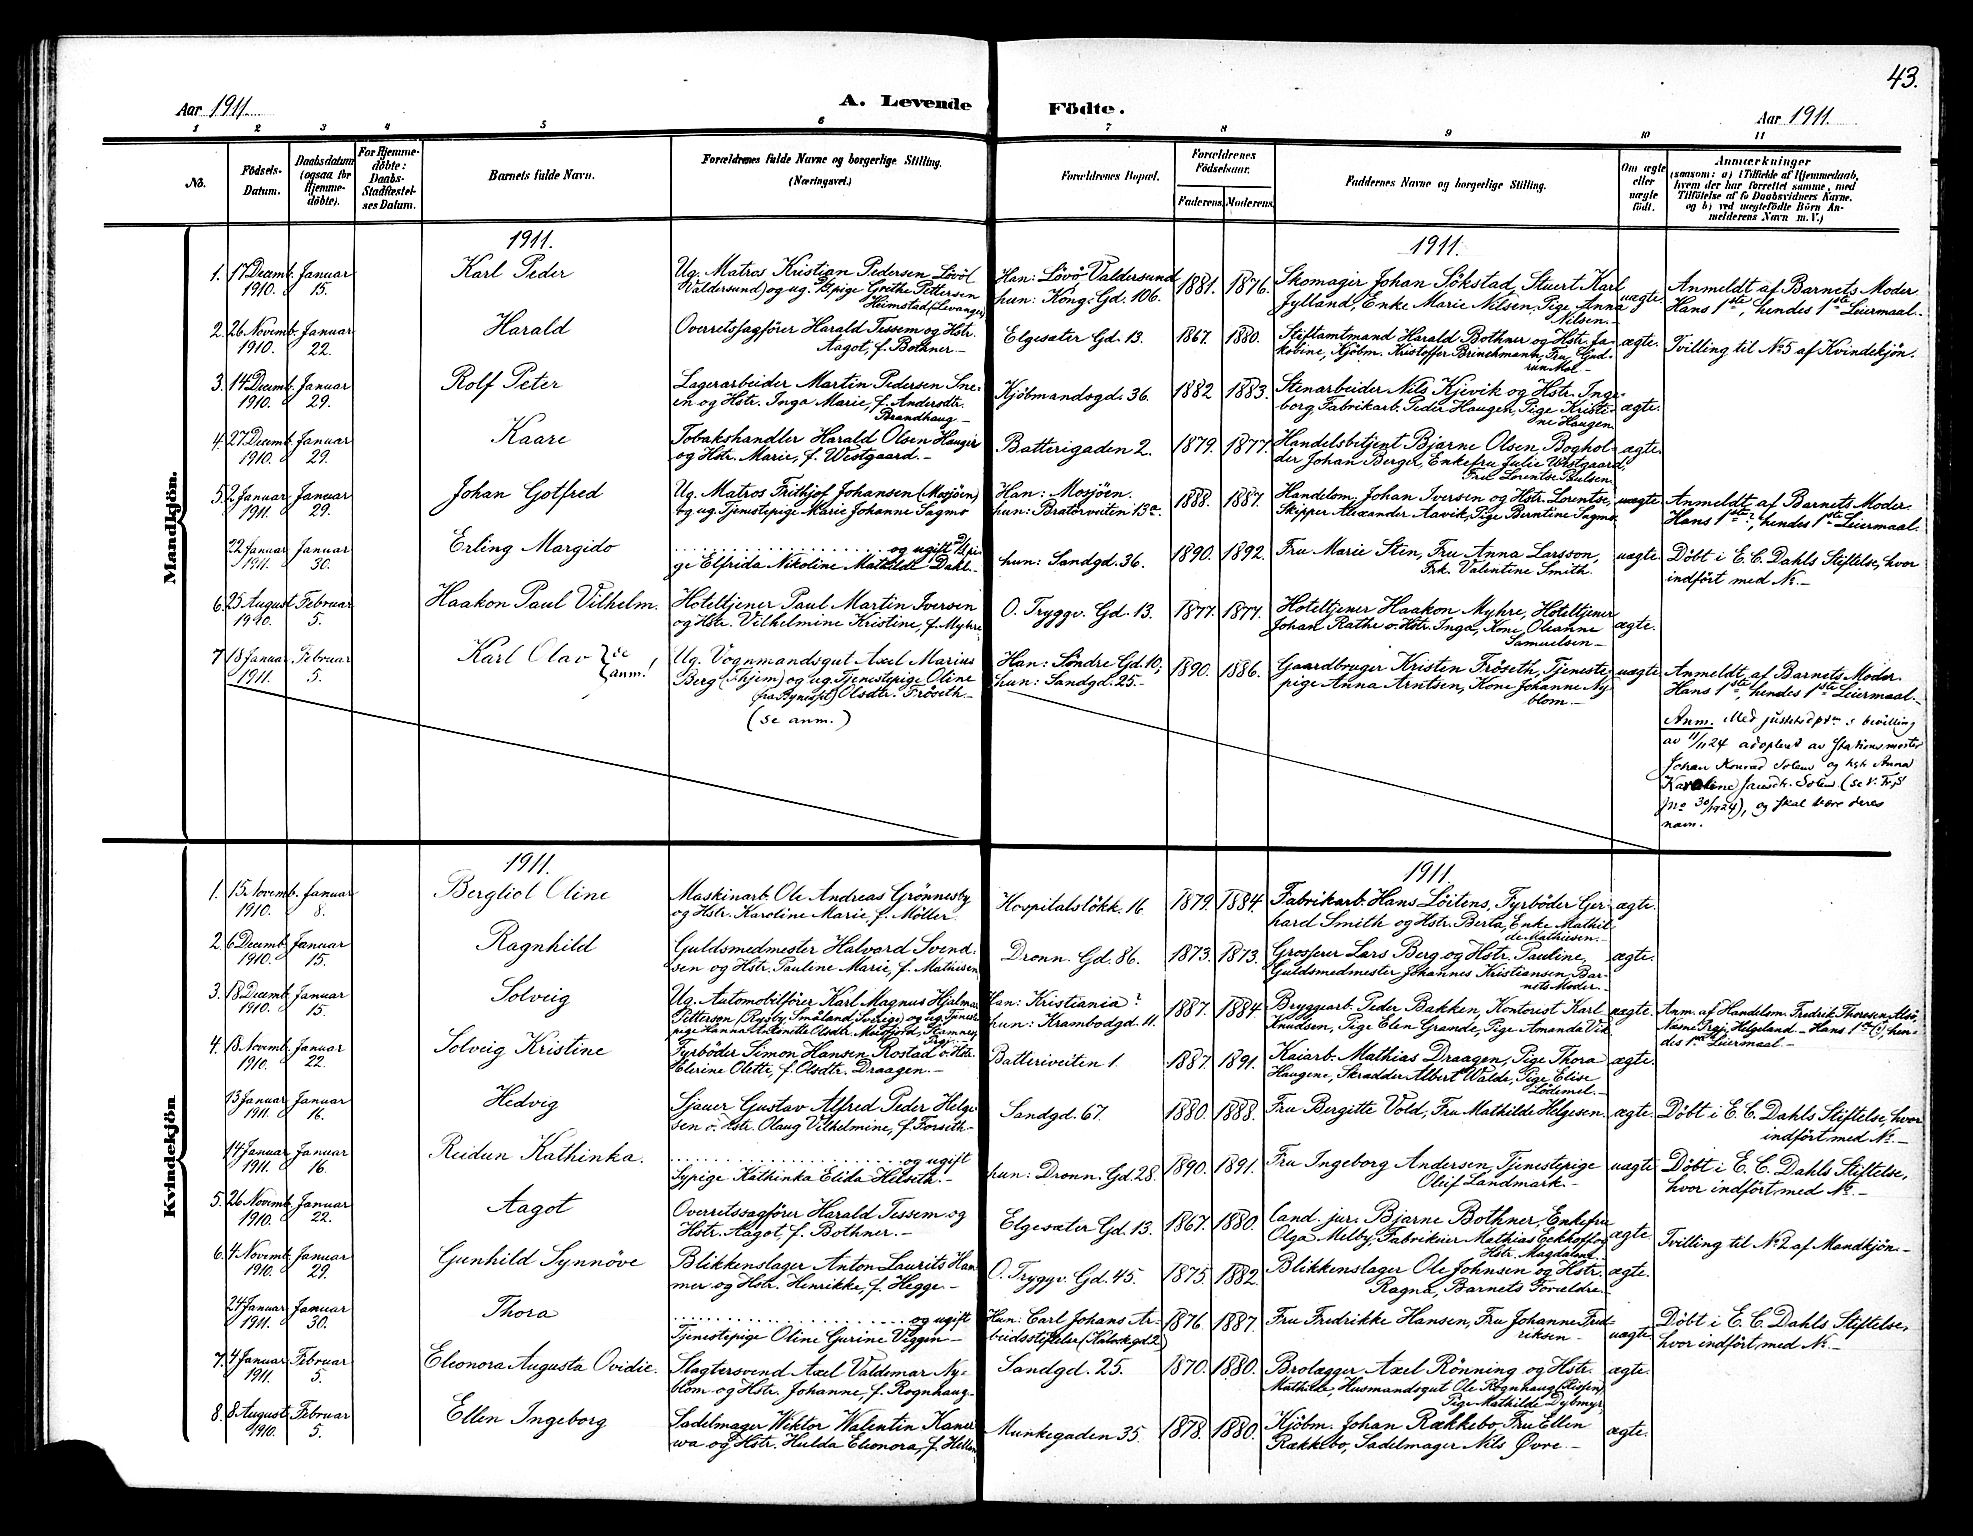 43.
Aar 1911.
A. Levende Födte.
Aar 1911.
1 2 3 4 5 6 7 8 9 10 11
No.
Födsels-
Datum.
Daabsdatum
(ogsaa for
Hjemme-
döbte).
For Hjemme-
döbte:
Daabs-
Stadfæstel-
ses Datum.
Barnets fulde Navn.
Forældrenes fulde Navne og borgerlige Stilling.
(Næringsvei.)
Forældrenes Bopæl.
Forældrenes
Födselsaar.
Faderens. Moderens.
Faddernes Navne og borgerlige Stilling.
Om ægte
eller
uægte
født.
Anmærkninger
(saasom: a) i Tilfælde af Hjemmedaab,
hvem der har forrettet samme, med
Tilföielse af to Daabsvidners Navne,
og b) ved uægtefödte Börn An-
melderens Navn m. V.)
Mandkjön.
1911.
1911.
1. 17 Decemb. 1910. Januar 15. Karl Peder
Ug. Matros Kristian Pedersen Lövöl
(Valdersund) og ug. Tj.pige Grethe Pettersen
Heimstad (Levanger)
Han: Lövö Valdersund
hun: Kong. Gd. 106.
1881. 1876.
Skomager Johan Sökstad, Stuert Karl
Jylland, Enke Marie Nilsen, Pige Anna
Nilsen.
uægte.
Anmeldt af Barnets Moder.
Hans 1ste, hendes 1ste Leiermaal.
2. 26 Novemb. 1910. Januar 22. Harald
Overretssagförer Harald Tessem og Hstr.
Aagot, f. Bothner.
Elgesæter Gd. 13.
1867. 1880.
Stiftamtmand Harald Bothner og Hstr. Ja-
kobine, Kjöbm. Kristoffer Brinchmann, Fru Gud-
run Moe.
ægte.
Tvilling til No 5 af Kvindekjön.
3. 14 Decemb. 1910. Januar 29. Rolf Peter
Lagerarbeider Martin Pedersen Sne-
en og Hstr. Inga Marie, f. Andersdtr.
Brandhaug.
Kjöbmandsgd. 36.
1882 1883.
Stenarbeider Nils Kjevik og Hstr. Inge-
borg, Fabrikarb. Peder Haugen, Pige Kristi-
ne Haugen
ægte.
4. 27 Decemb. 1910. Januar 29. Kaare
Tobakshandler Harald Olsen Hauger
og Hstr. Marie, f. Westgaard.
Batterigaden 2.
1879. 1877.
Handelsbetjent Bjarne Olsen, Boghol-
der Johan Berger, Enkefru Julie Westgaard,
Fru Lorentse Paulsen.
ægte.
5. 2 Januar 1911. Januar 29. Johan Gotfred
Ug. Matros Frithjof Johansen (Mosjöen)
og ug. Tjenestepige Marie Johanne Sagmo
Han: Mosjöen.
hun: Bratörveiten 13a.
1888. 1887.
Handelsm. Johan Iversen og Hstr. Lorentse,
Skipper Alexander Aavik, Pige Berntine Sagmo.
uægte.
Anmeldt af Barnets Moder.
Hans 1ste?, hendes 1ste Leiermaal.
22 Januar 1911. Januar 30. Erling Margido
og ugift Tj.pi-
ge Elfrida Nikoline Mathilde Dahl.
hun: Sandgd. 36.
1890. 1892.
Fru Marie Stin, Fru Anna Larsson,
Frk. Valentine Smith.
uægte.
Döbt i E. C. Dahls Stiftelse, hvor
indfört med No —
6. 25 August 1910. Februar 5. Haakon Paul Vilhelm.
Hoteltjener Paul Martin Iversen
og Hstr. Vilhelmine Kristine, f. Myhre.
O. Tryggv. Gd. 13.
1877. 1877.
Hoteltjener Haakon Myhre, Hoteltjener
Johan Rathe o. Hstr. Inga, Kone Oleanne
Samuelsen.
ægte.
7 18 Januar 1911. Februar 5. Karl Olav } se anm!
Ug. Vognmandsgut Axel Marius
Berg (Tr.hjem) og ug. Tjenestepige Oline
(fra Bynesset) Olsdtr. Fröseth.
(se anm.)
Han: Söndre Gd. 10,
hun: Sandgd. 25.
1890. 1886.
Gaardbruger Kristen Fröseth, Tjeneste-
pige Anna Arntsen, Kone Johanne Ny-
blom.
uægte
Anmeldt af Barnets Moder.
Hans 1ste, hendes 1ste Leiermaal.
Anm. Med justitsdptm s bevilling
av 11/11 24 adoptert av stationsmester
Johan Konrad Solem og hstr Anna
Karoline Solem (se
No 30/1924), og skal bære deres
navn.
Kvindekjön
1911.
1911.
1. 15. Novemb. 1910. Januar 8. Bergliot Oline
Maskinarb. Ole Andreas Grönnesby
og Hstr. Karoline Marie, f. Möller.
Hospitalslökk. 16
1879. 1884.
Fabrikarb. Hans Löitens, Fyrböder Ger-
hard Smith og Hstr. Berta, Enke Mathil-
de Mathiesen.
ægte.
2. 6 Decemb. 1910. Januar 15. Ragnhild
Guldsmedmester Halvard Svend-
sen og Hstr. Pauline Marie, f. Mathisen
Dronn. Gd. 86.
1873. 1873.
Grosserer Lars Berg og Hstr. Pauline,
Guldsmedmester Johannes Kristiansen, Bar-
nets Moder.
ægte.
3. 18 Decemb. 1910. Januar 15. Solveig
Ug. Automobilförer Karl Magnus Hjalmar
Pettersen (Rysby, Småland, Sverige) og ug. Tjeneste-
pige Hanna Antonette Olsdtr. Meisfjord, Stamnes
Prgj.
Han: Kristiania?
hun: Krambodgd. 11.
1887. 1884
Bryggearb. Peder Bakken, Kontorist Karl
Knudsen, Pige Elen Grande, Pige Amanda Vik
uægte.
Anm. af Handelsm. Fredrik Thoresen, Alsö,
Næsne Prgj. Helgeland. Hans 1ste (?), hen-
des 1ste Leiermaal.
4. 18 Novemb. 1910. Januar 22. Solveig Kristine
Fyrböder Simon Hansen Rostad o. Hstr.
Elerine Olette, f. Olsdtr. Draagen.
Batteriveiten 1.
1887. 1891.
Kaiarb. Mathias Draagen, Pige Thora
Haugene, Skrædder Albert Walde, Pige Elise
Lödemel.
ægte.
13 Januar 1911. Januar 16. Hedvig
Sjauer Gustav Alfred Peder Helge-
sen o. Hstr. Olaug Vilhelmine, f. Forseth.
Sandgd. 67.
1880. 1888.
Fru Bergitte Vold, Fru Mathilde Helgesen.
ægte.
Döbt i E. C. Dahls Stiftelse, hvor
indfört med No —
14 Januar 1911. Januar 16. Reidun Kathinka.
og ugift
Sypige Kathinka Elida Helseth.
hun: Dronn. Gd. 28.
1890. 1891.
Fru Ingeborg Andersen, Tjenestepige
Oleif Landmark.
uægte
Döbt i E. C. Dahls Stiftelse,
hvor indfört med No —
5. 26 Novemb. 1910. Januar 22. Aagot
Overretssagförer Harald Tessem og
Hstr. Aagot, f. Bothner.
Elgesæter Gd. 13.
1867. 1880.
Cand. jur. Bjarne Bothner, Enkefru
Olga Melby, Fabrikeier Mathias Eckhoff og
Hstr. Magdalene.
ægte.
Tvilling til No 2 af Mandkjön.
6. 4 Novemb. 1910. Januar 29. Gunhild Synnöve
Blikkenslager Anton Laurits Ham-
mer og Hstr. Henrikke, f. Hegge.
O. Tryggv. Gd. 45.
1875. 1882.
Blikkenslager Ole Johnsen og Hstr.
Ragna, Barnets Forældre.
ægte.
24 Januar 1911. Januar 30. Thora
og ugift
Tjenestepige Oline Gurine Viggen
Hun: Carl Johans Ar-
beidsstiftelse (Kalvskgd. 2)
1876 1887.
Fru Fredrikke Hansen, Fru Johanne Fred-
riksen.
uægte
Döbt i E. C. Dahls Stiftelse,
hvor indfört med No —
7. 4 Januar 1911. Februar 5. Eleonora Augusta Ovidie.
Slagtersvend Axel Valdemar Ny-
blom og Hstr. Johanne, f. Rognhaug.
Sandgd. 25.
1870. 1880.
Brolægger Axel Rönning og Hstr.
Mathilde, Husmandsgut Ole Rognhaug (Rissen),
Pige Mathilde Dybmyr,
ægte.
8. 8 August 1910. Februar 5. Ellen Ingeborg
Sadelmager Wiktor Walentin Kaner-
wa og Hstr. Hulda Eleonora, f. Hellen
Munkegaden 35.
1878. 1880.
Kjöbm. Johan Rækkebo, Fru Ellen
Rækkebo, Sadelmager Nils Øvre.
ægte.